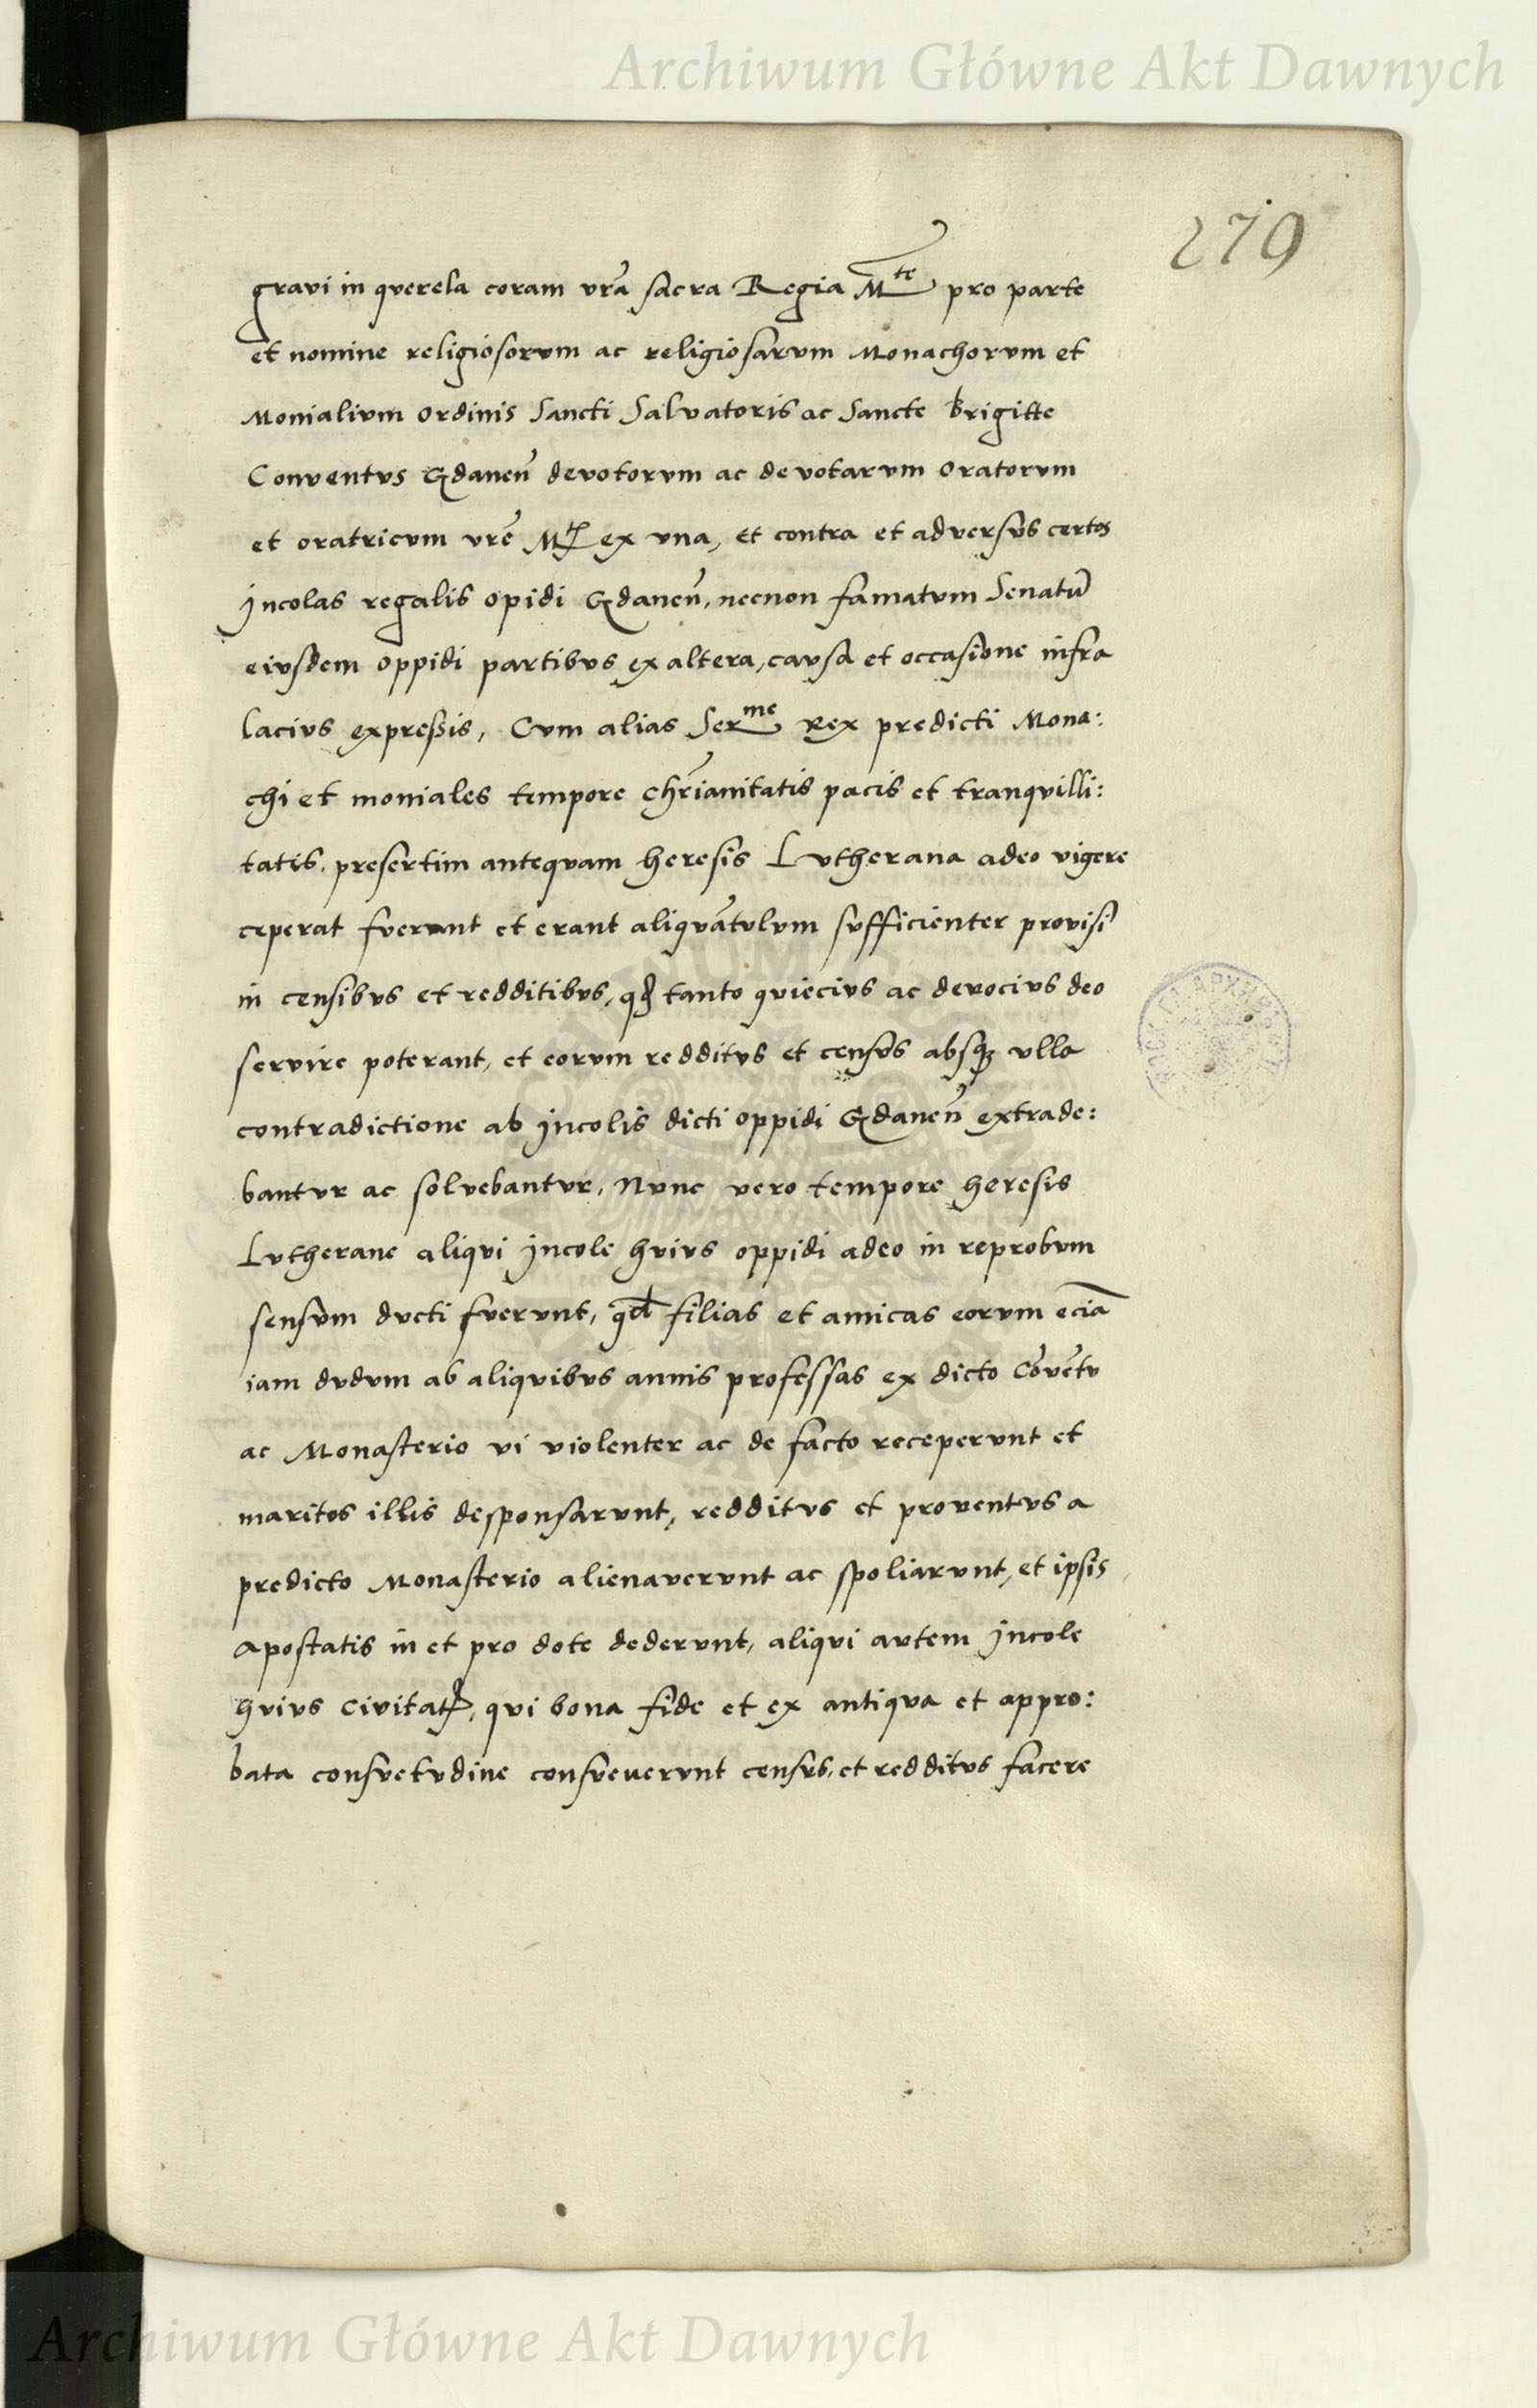 Archiwum Główne Akt Dawnych
279
gravi in qverela coram vr̃a sacra Regia Mte pro parte
et nomine religiosorvm ac religiosarvm Monachorvm et
Monialivm ordinis Sancti Salvatoris ac Sancte Brigitte
Conventvs Gdaneñ devotorvm ac devotarvm oratorvm
et oratricvm vr̃e Mtꝭ ex vna, et contra et adversvs certos
jncolas regalis opidi Gdaneñ, necnon famatvm Senatũ
eivsdem oppidi partibvs ex altera, cavsa et occasione infra
lacivs expressis, Cvm alias Serme Rex predicti Mona:
chi et moniales tempore chr̃ianitatis pacis et tranqvilli:
tatis, presertim anteqvam heresis Lvtherana adeo vigere
ceperat fverunt et erant aliqvãtvlvm svfficienter provisi
in censibvs et redditibvs, qđ tanto qviecivs ac devocivs deo
servire poterant, et eorvm redditvs et censvs absqꝫ vlla
contradictione ab jncolis dicti oppidi Gdaneñ extrade:
bantvr ac solvebantvr, Nvnc vero tempore heresis
Lvtherane aliqvi jncole hvivs oppidi adeo in reprobvm
sensvm dvcti fvervnt, qđ filias et amicas eorvm eciã
iam dvdvm ab aliqvibvs annis professas ex dicto Cõvẽtv
ac Monasterio vi violenter ac de facto recepervnt et
maritos illis desponsarvnt, redditvs et proventvs a
predicto Monasterio alienavervnt ac spoliarvnt, et ipsis
apostatis in et pro dote dedervnt, aliqvi avtem jncole
hvivs Civitatꝭ, qvi bona fide et ex antiqva et appro:
bata consvetvdine consvevervnt censvs, et redditvs facere
Archiwum Główne Akt Dawnych